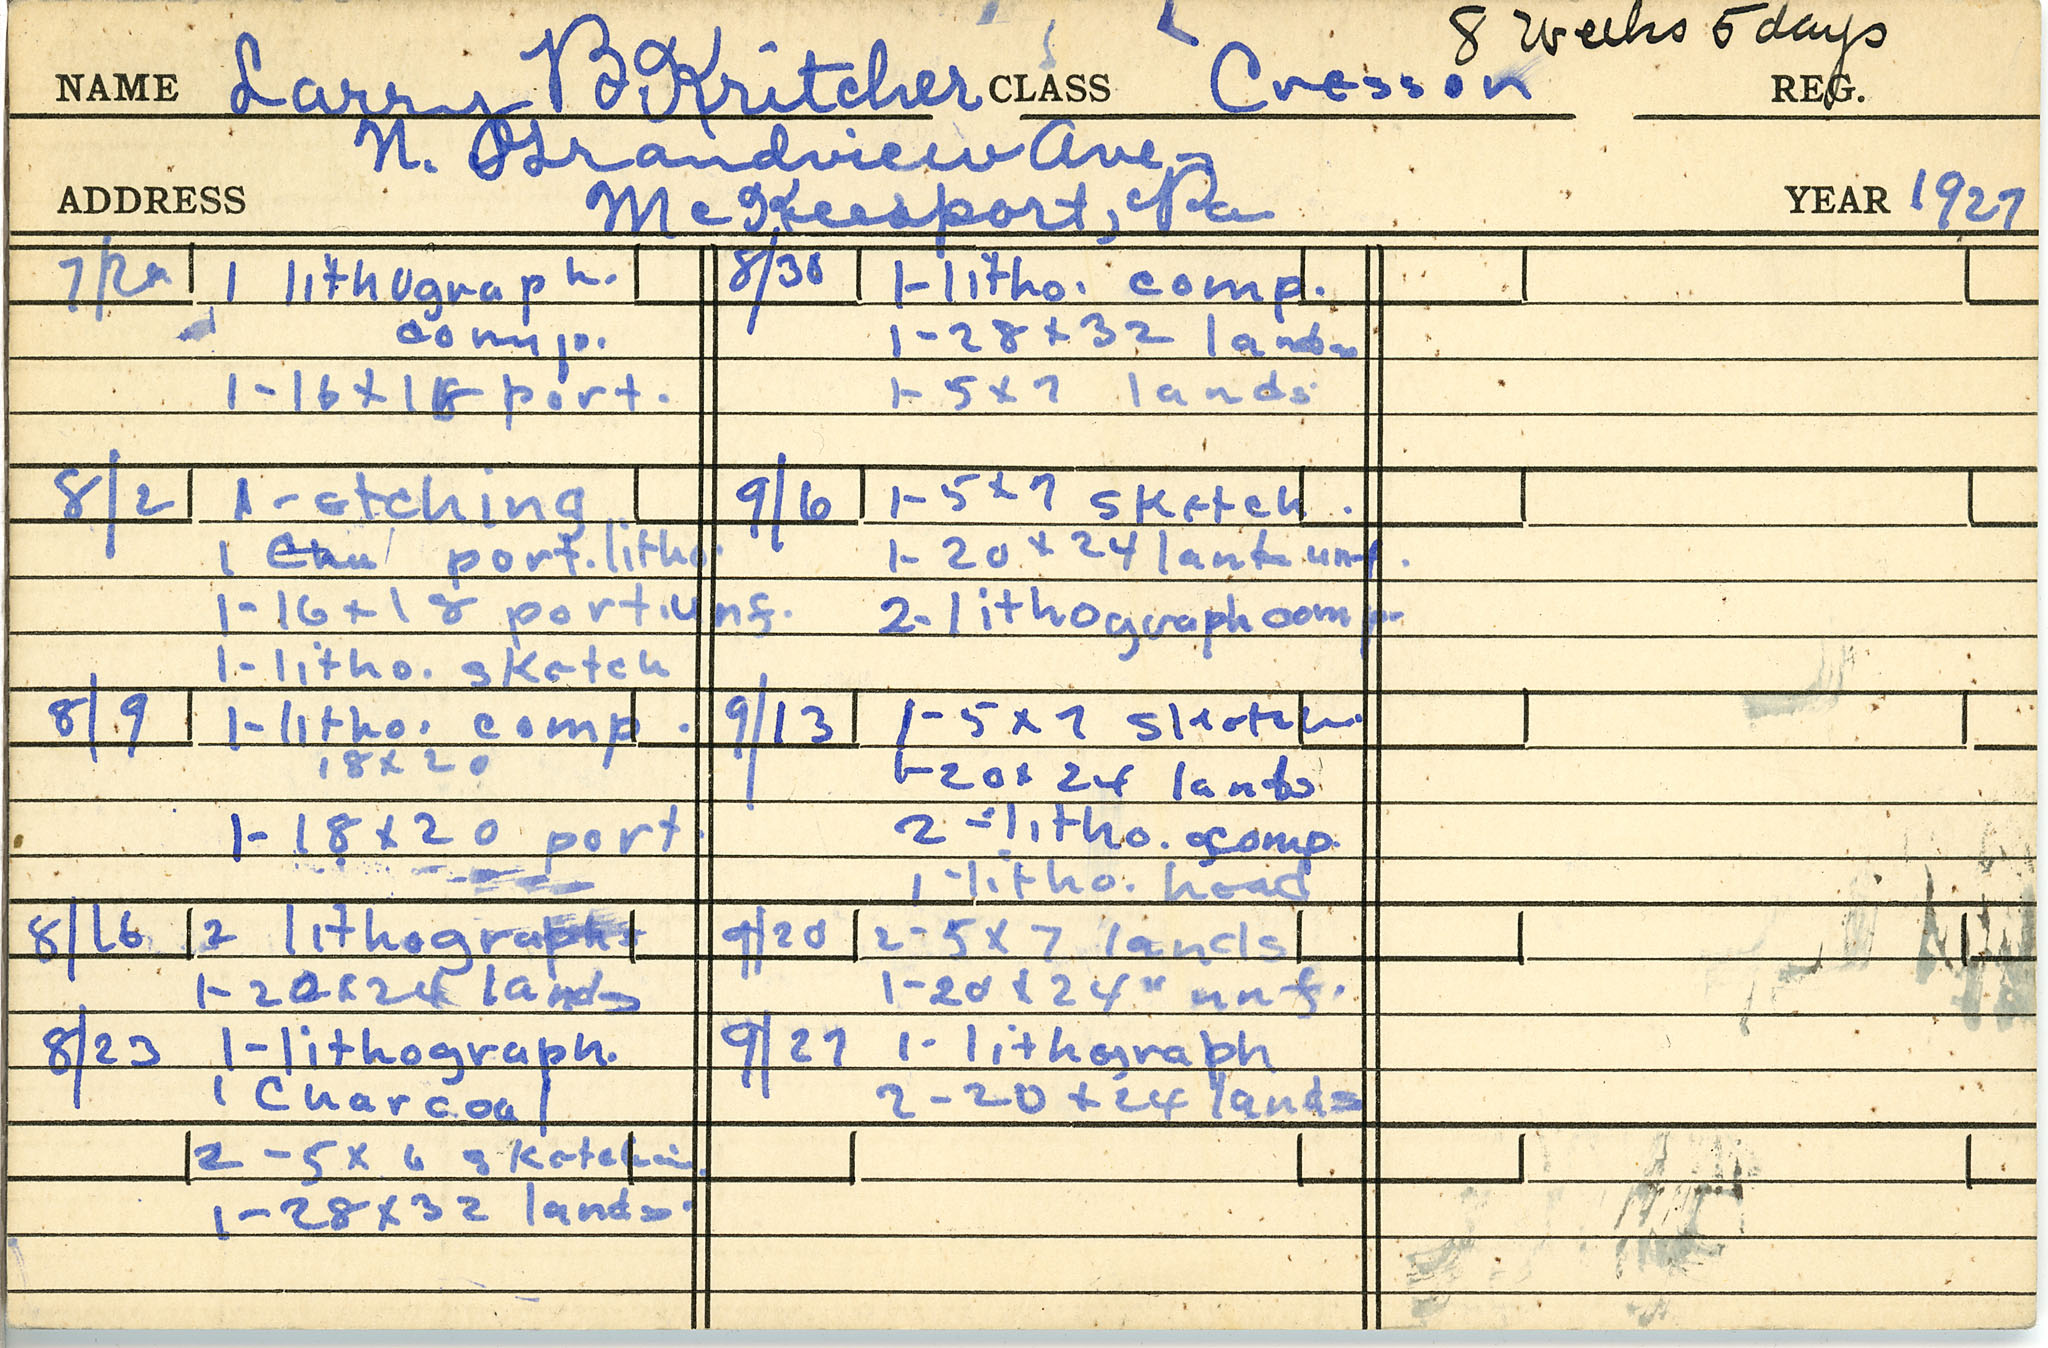 8 weeks 5 days
NAME Larry B. Kritcher CLASS Cresson REG.
N. Grandview Ave.,
ADDRESS McKeesport, Pa YEAR 1927
1 lithograph.
comp.
1-16x18 port.
8/2 1-etching
1 port. litho.
1-16x18 port. unf.
1-litho. sketch
8/9 1-litho. comp.
18x20
1-18x20 port.
8/16 2 lithographs
1-20x24 lands
8/23 1-lithograph.
1 Charcoal
2-5x6 sketches
1-28x32 lands.
8/30 1-litho. comp.
1-28x32 lands
1-5x7 lands.
9/6 1-5x7 sketch.
1-20x24 lands unf.
2-lithograph comp.
9/13 1-5x7 sketch.
1-20x24 lands
2-litho. comp.
1-litho. head
9/20 2-5x7 lands
1-20x24 " unf.
9/27 1-lithograph
2-20x24 lands